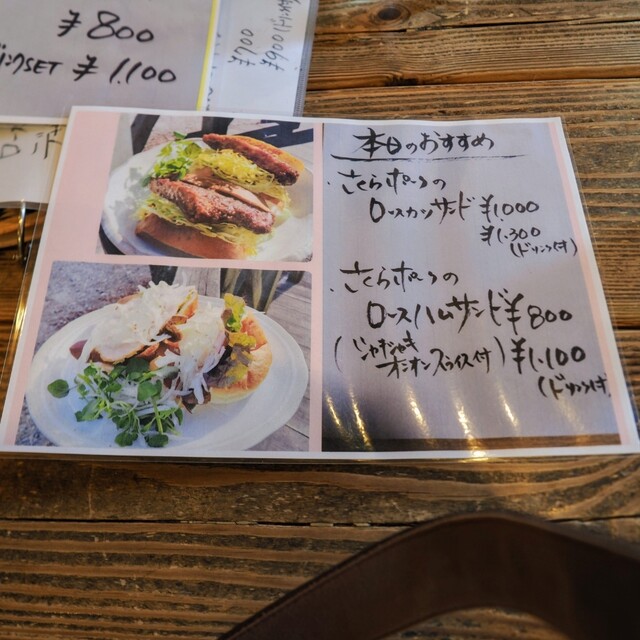 ¥800
ドリンクSET ¥1,100
¥700
本日のおすすめ
・さくらポークの
ロースカツサンド ¥1,000
¥1,300
(ドリンク付)
・さくらポークの
ロースハムサンド ¥800
オニオンスライス付) ¥1,100
(ドリンク付)